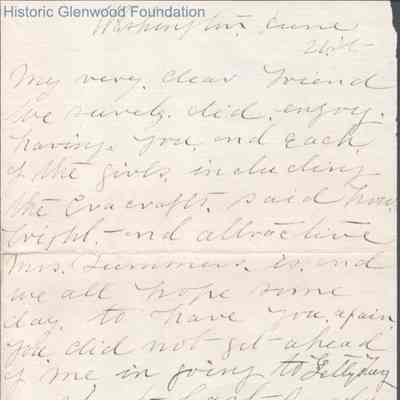 Historic Glenwood Foundation
Washington, June
My very dear Friend
We surely did enjoy
having you and each
of the girls including
the said how
bright and attractive
Mrs. Summers is and
we all hope some
day to have you again
You did not get ahead
of me in going to Gettysburg